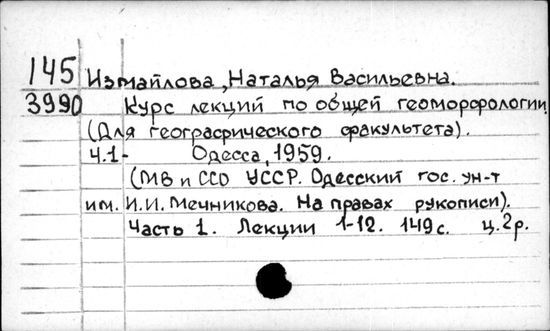 145 Измайлова, Наталья Васильевна.
3990 Курс лекций по общей геоморфологии
(Для географического факультета).
Ч.1- Одесса, 1959.
(МВ и ССО УССР. Одесский гос. ун-т
им. И.И. Мечникова. На правах рукописи).
Часть 1. Лекции 1-12. 149 с. ц.2р.